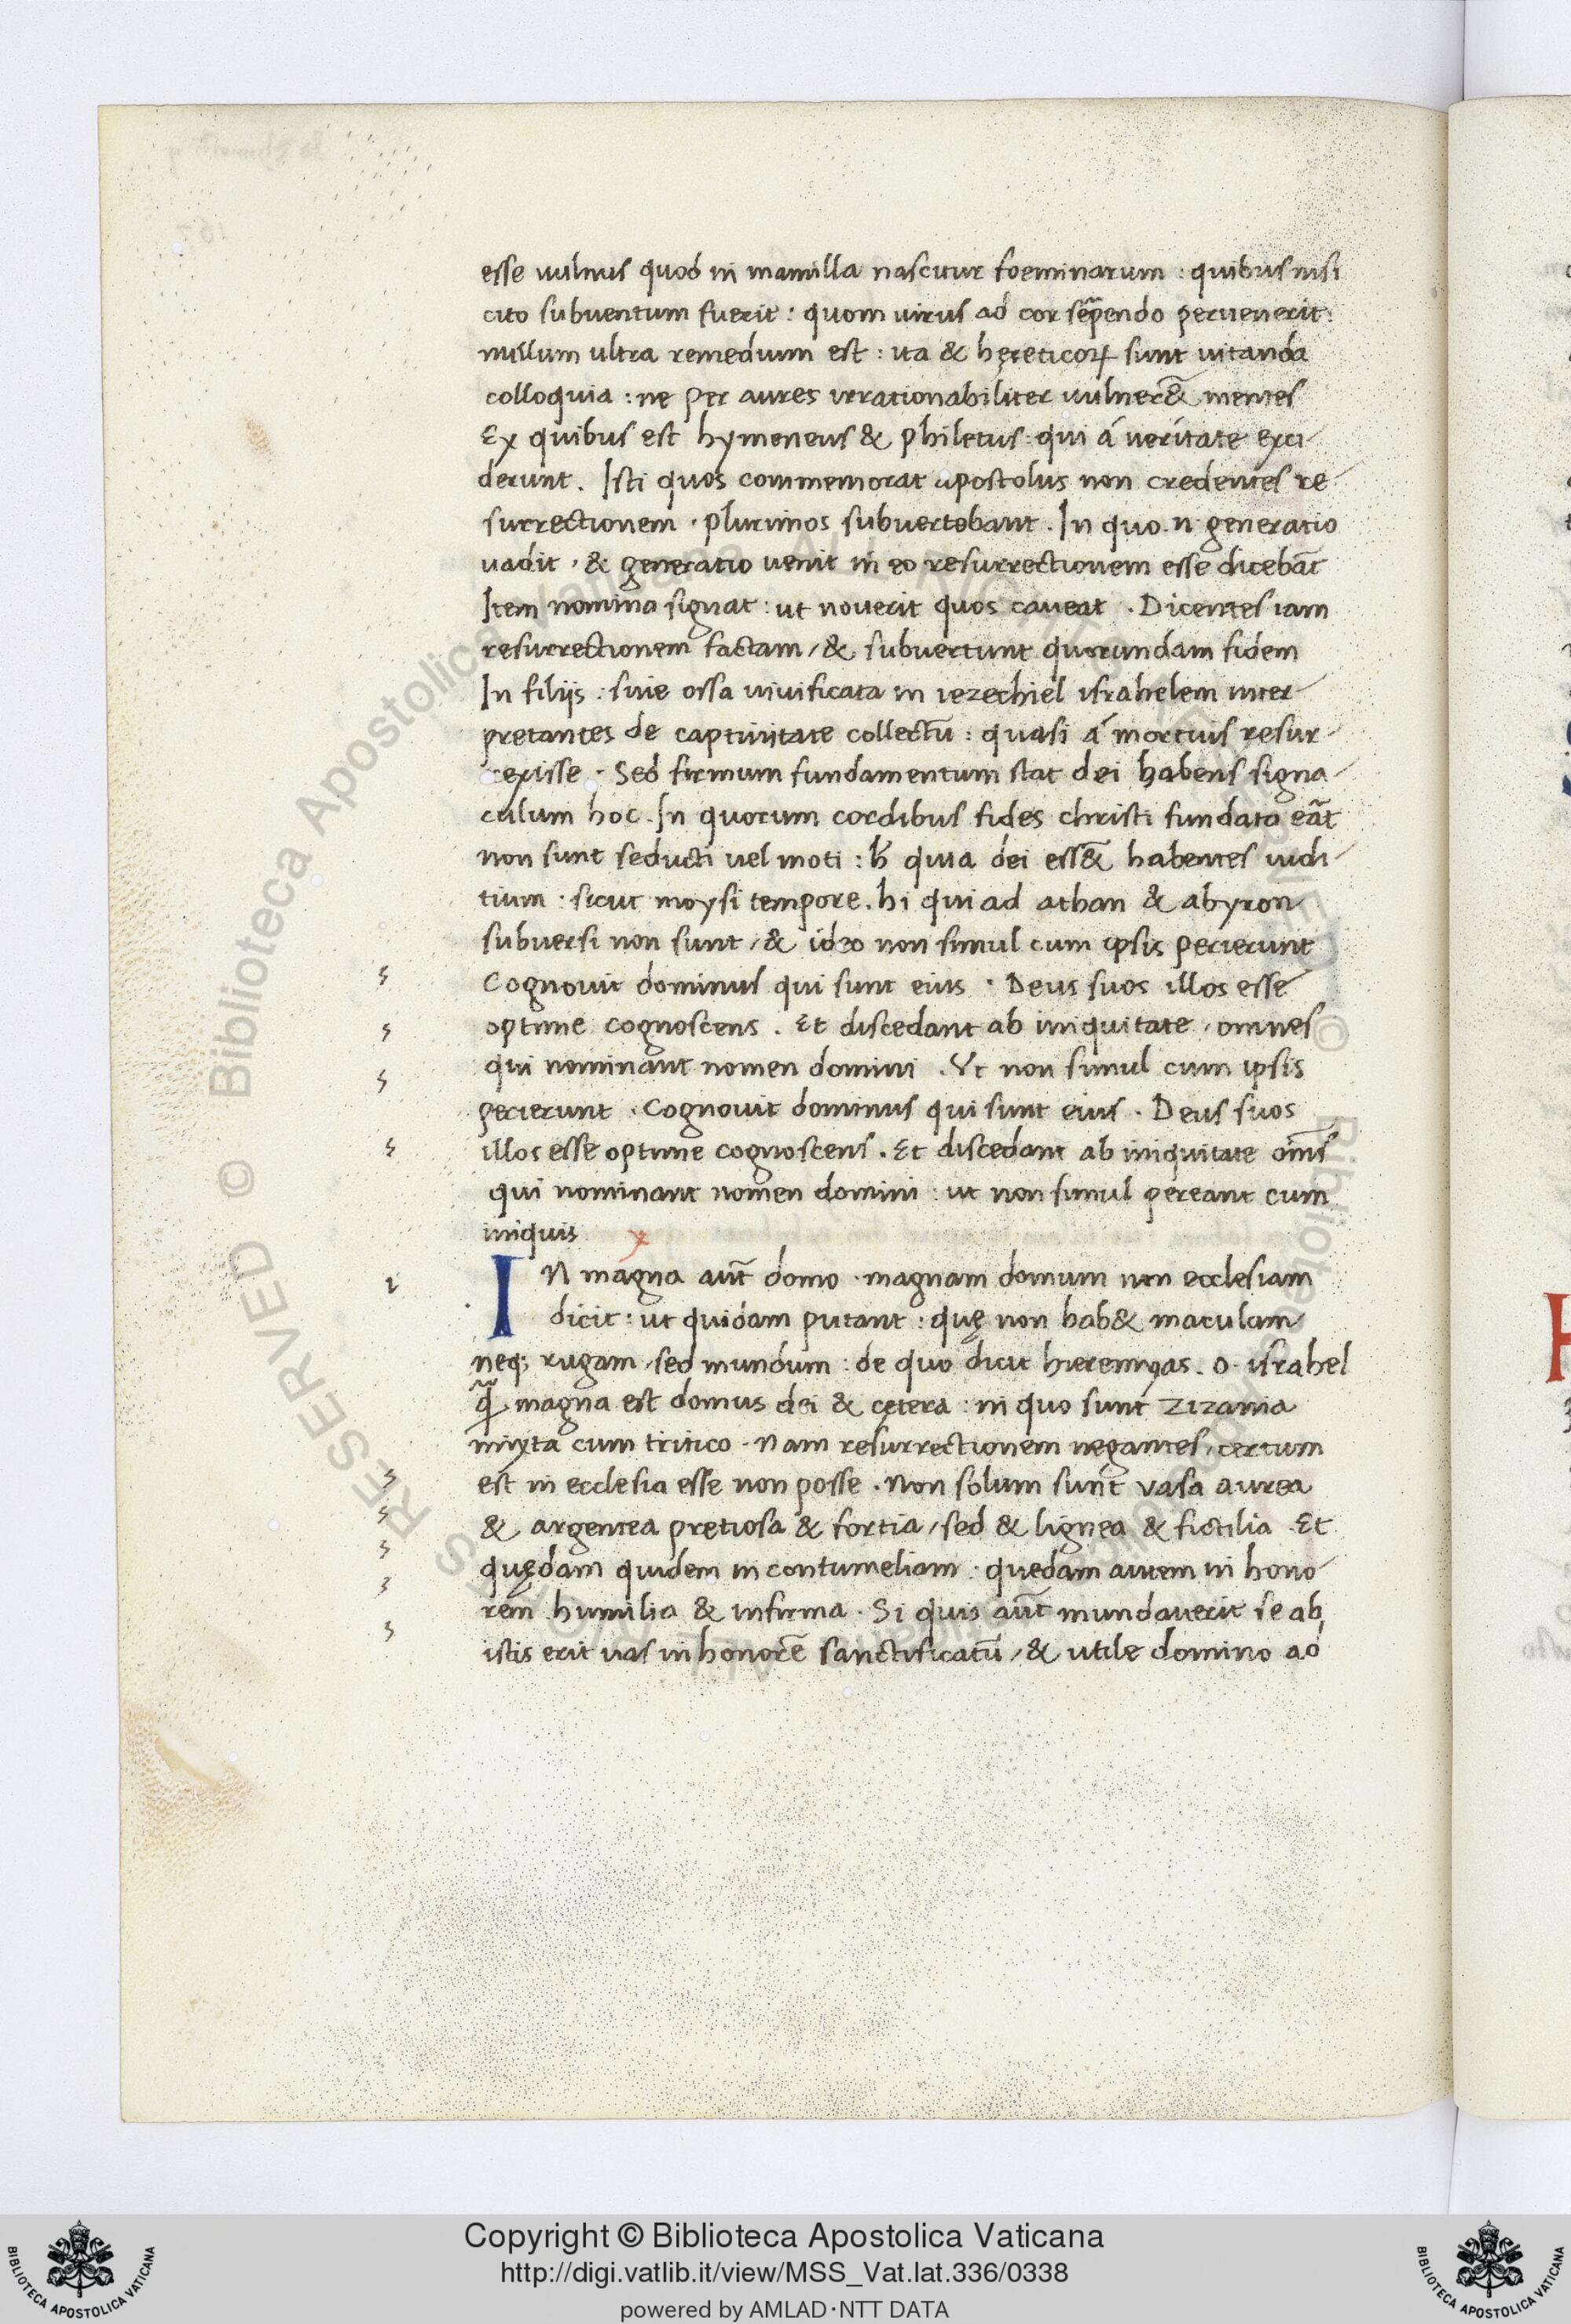 esse uulnus quod in mamilla nascitur foeminarum : quibus nisi
cito subuentum fuerit : quom uirus ad cor serpendo peruenerit:
nullum ultra remedium est : ita & hęreticoꝝ sunt uitanda
colloquia : ne per aures irrationabiliter uulner&̄ mentes
Ex quibus est hymeneus & philetus : qui á ueritate exci-
derunt . Isti quos commemorat apostolus non credentes re-
surrectionem · plurimos subuertebant . In quo . n generatio
uadit · & generatio uenit in eo resurrectionem esse dicebāt
Item nomina signat : ut nouerit quos caueat . Dicentes iam
resurrectionem factam / & subuertunt quorundam fidem
In filijs : siue ossa uiuificata in iezechiel israhelem inter-
pretantes de captiuitate collectū : quasi á mortuis resur-
rexisse . Sed firmum fundamentum stat dei habens signa-
culum hoc . In quorum cordibus fides christi fundata eāt
non sunt seducti uel moti : ħ quia dei ess&̄ habentes iudi-
tium : sicut moysi tempore . hi qui ad athan & abyron
subuersi non sunt / & ideo non simul cum ipsis perierunt
Cognouit dominus qui sunt eius · Deus suos illos esse
optime cognoscens . Et discedant ab iniquitate , omnes
qui nominant nomen domini . Vt non simul cum ipsis
perierunt . Cognouit dominus qui sunt eius . Deus suos
illos esse optime cognoscens . Et discedant ab iniquitate oīns
qui nominant nomen domini : ut non simul pereant cum
iniquis
IN magna aūt domo · magnam domum non ecclesiam
dicit : ut quidam putant : quę non hab& maculam
neq; rugam / sed mundum : de quo dicit hieremyas . o . israhel
q̄ magna est domus dei & cętera : in quo sunt zizania
mixta cum tritico . Nam resurrectionem negantes , certum
est in ecclesia esse non posse . Non solum sunt vasa aurea
& argentea pretiosa & fortia / sed & lignea & fictilia . Et
quędam quidem in contumeliam · quedam autem in hono-
rem humilia & infirma . Si quis aūt mundauerit se ab
istis erit uas in honorē sanctificatū / & utile domino ad
Copyright © Biblioteca Apostolica Vaticana
http://digi.vatlib.it/view/MSS_Vat.lat.336/0338
powered by AMLAD·NTT DATA